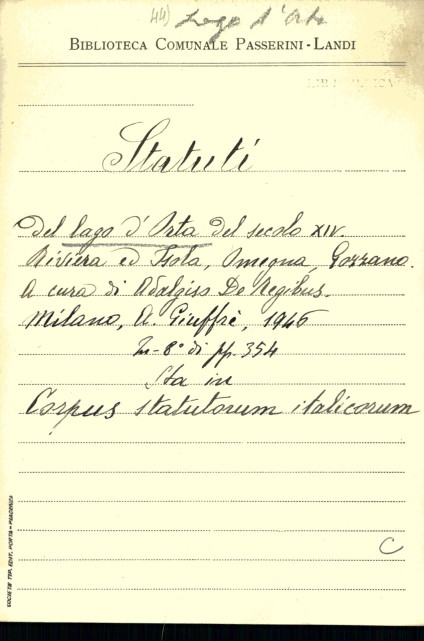 44) Lago d'Orta
BIBLIOTECA COMUNALE PASSERINI - LANDI
Statuti
del lago d'Orta del secolo XIV.
Riviera ed Isola, Omegna, Gozzano.
A cura di Adalgiso De Regibus.
Milano, A. Giuffrè, 1946
In-8° di pp. 354
Sta in
Corpus statutorum italicorum
C
SOCIETÀ TIP. EDIT. PORTA - PIACENZA